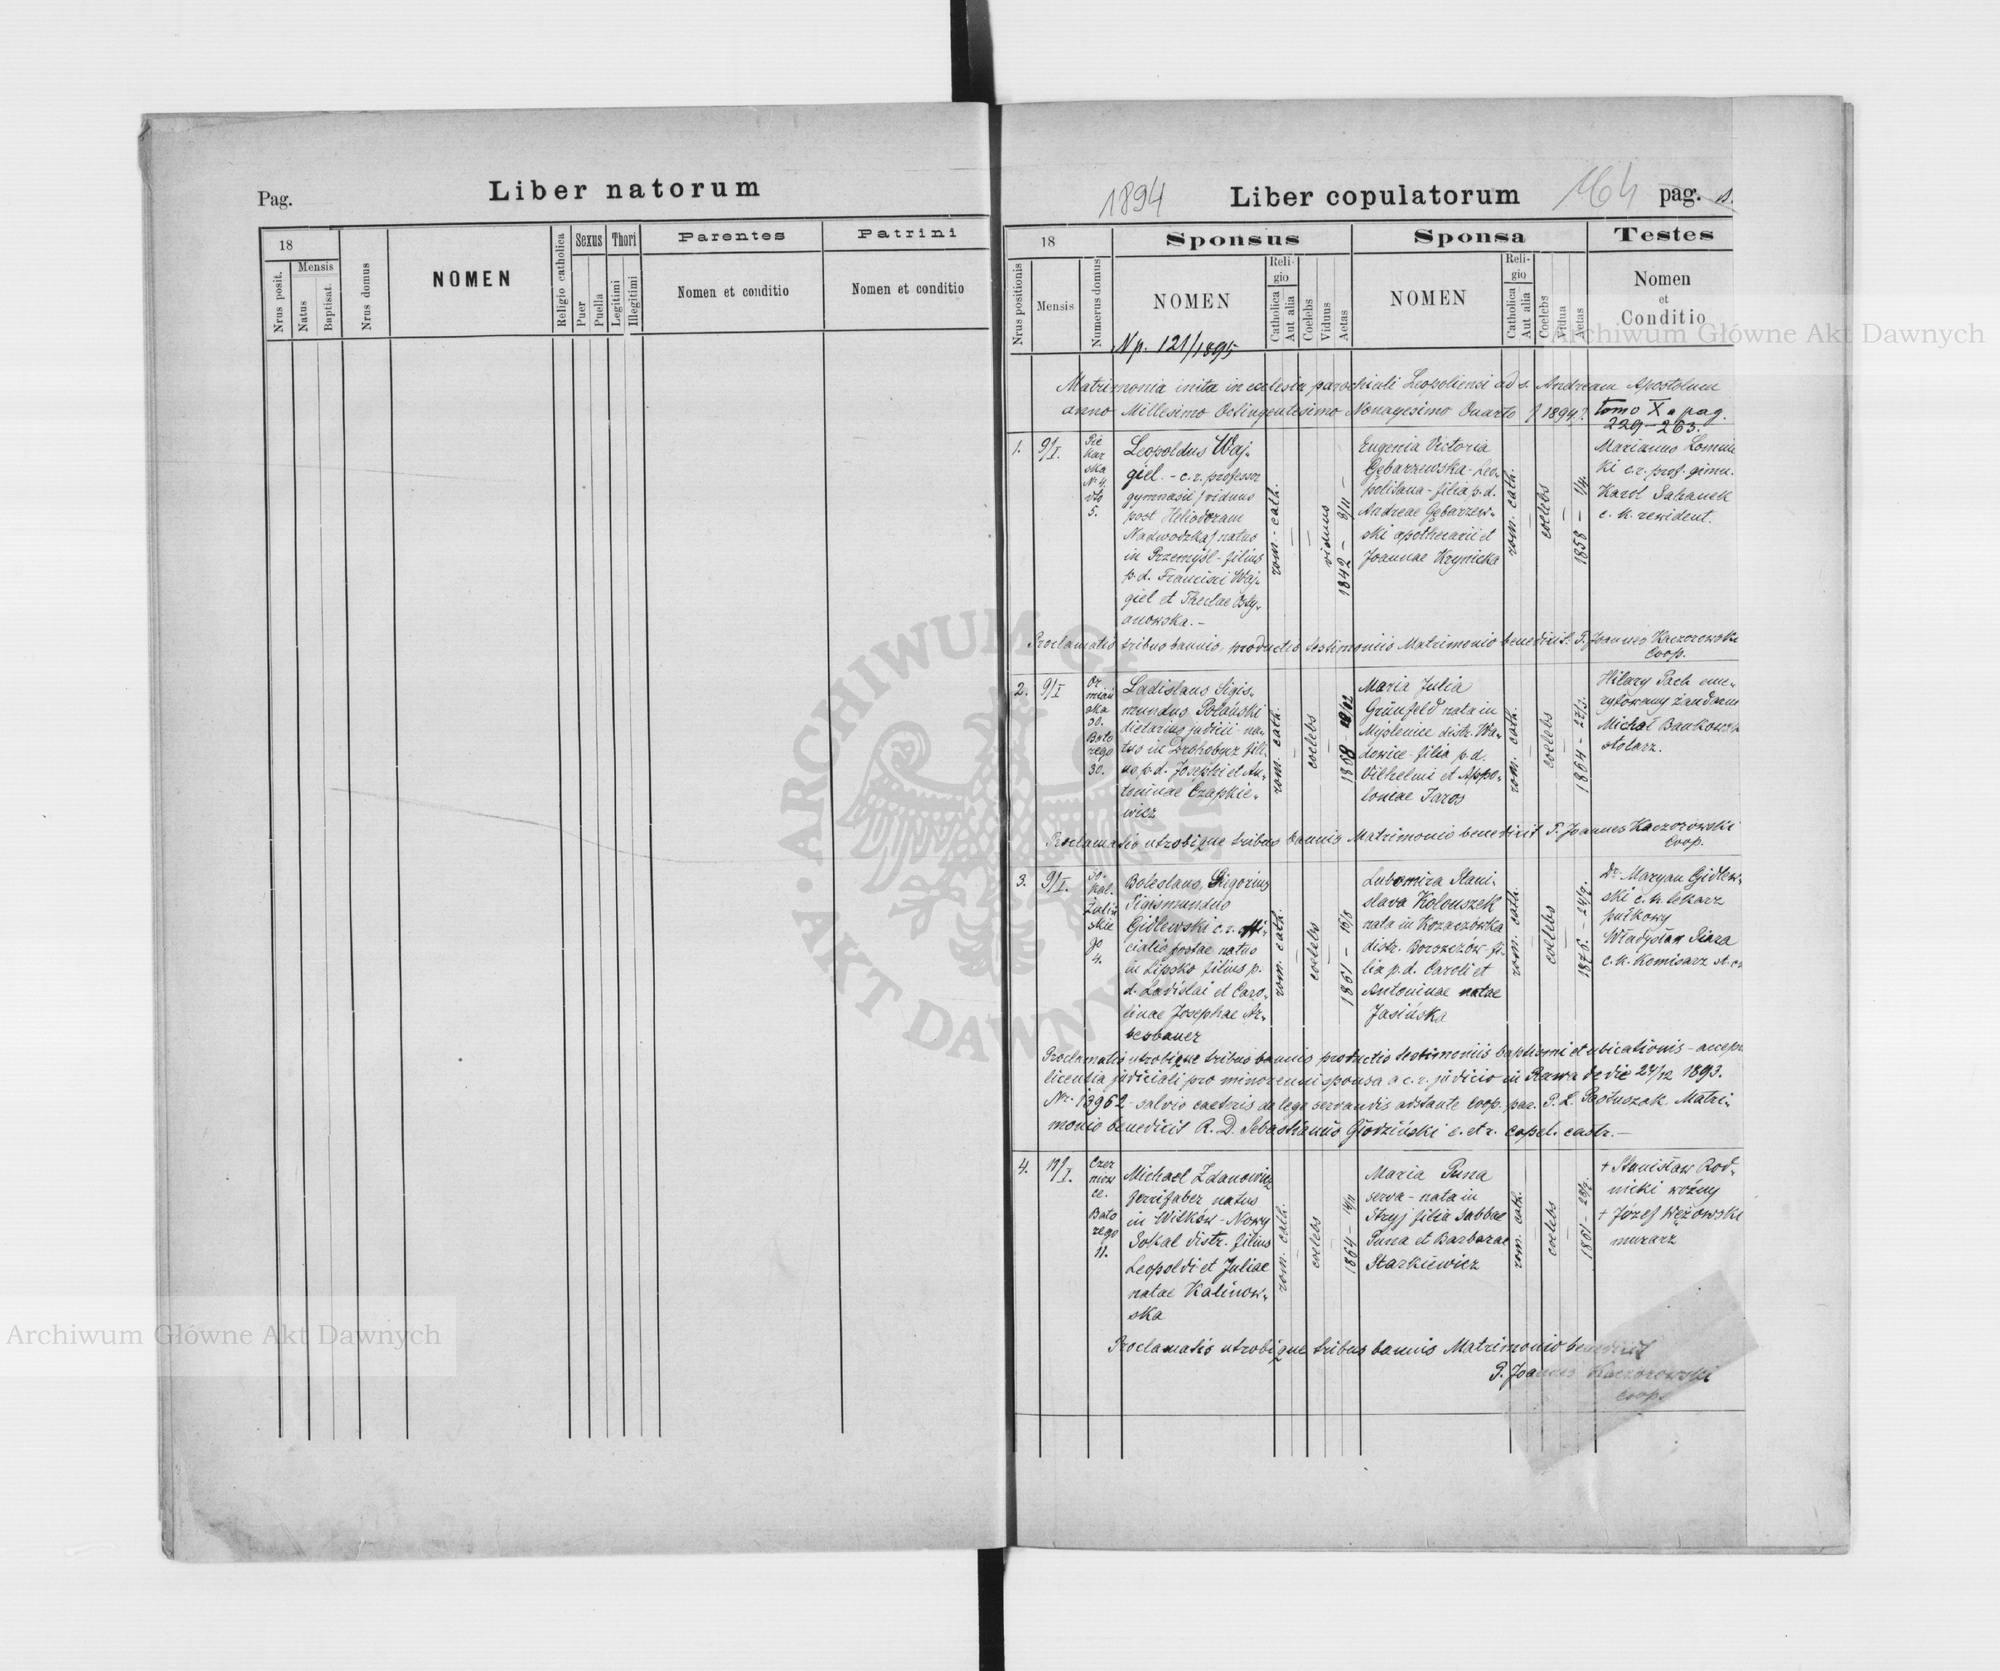 Pag.
Liber natorum
18
Nrus posit.
Mensis
Natus
Baptisat.
Nrus domus
NOMEN
Religio catholica
Sexus
Puer
Puella
Thori
Legitimi
Illegitimi
Parentes
Nomen et conditio
Patrini
Nomen et conditio
1894
Liber copulatorum
164
pag.
18
Nrus positionis
Mensis
Numerus domus
Sponsus
NOMEN
Religio
Catholica
Aut alia
Coelebs
Viduus
Aetas
Sponsa
NOMEN
Religio
Catholica
Aut alia
Coelebs
Vidua
Aetas
Testes
Nomen
et
Conditio
Np. 121/1895
Matrimonia inita in ecclesia parochiali Leopoliensi ad s. Andream Apostolum
anno Millesimo Octingentesimo Nonagesimo Quarto / 1894 / tomo X pag.
229-263.
1.
9/I.
Pie
kar
ska
№ 4.
5.
Leopoldus Waj-
giel. - c.r. professor
gymnasii / viduus
post Heliodoram
Nadwodzka / natus
in Przemyśl - filius
p. d. Francisci Waj-
giel et Theclae
anowska. -
rom. - cath.
viduus
1842 - 8/11 -
Eugenia Victoria
Gębarzewska - Leo-
politana - filia p. d.
Andreae Gębarzew-
ski apothecarii et
Joannae Krynicka
rom. cath.
coelebs
1858 - 1/4.
Marianus Łomnic
ki c.r. prof. gimn.
Karol
c. k. rewident.
Proclamatis tribus bannis, productis testimoniis Matrimonio benedixit P. Joannes Kaczorowski
Coop.
2.
9/I
Or
miań
ska
30.
Bato
rego
30.
Ladislaus Sigis-
mundus Polański
dietarius judicii - na-
tus in Drohobycz fili-
us p. d. Josephi et An-
toninae Czapkie-
wicz
rom. cath.
coelebs
Maria Julia
Grünfeld nata in
Myślenice distr. Wa-
dowice - filia p. d.
Vilhelmi et Appo-
loniae Jaros
rom. cath.
coelebs
1864 - 27/3.
Hilary Pach eme-
rytowany żandarm
Michał Bankowski
stolarz.
Proclamatis utrobique tribus bannis Matrimonio benedixit P. Joannes Kaczorowski
Coop.
3.
9/I.
So-
kal.
Zuliń
skie
go
4.
Boleslaus, Ligorius
Sigismundus
Gidlewski c.r. offi-
cialis postae natus
in Lipsko filius p.
d. Ladislai et Caro-
linae Josephae Ar-
besbauer
rom. cath.
coelebs
1861 - 15/8
Lubomira Stani-
slava Kolouszek
nata in Kozaczówka
distr. Borszczów - fi-
lia p. d. Caroli et
Antoninae natae
Jasińska
rom. cath.
coelebs
Dr. Maryan Gidlew-
ski c. k. lekarz
pułkowy
Władysław
c. k. Komisarz
Proclamatis utrobique tribus bannis productis testimoniis baptismi et ubicationis - accepta
licentia judiciali pro minorenni sponsa a c. r. judicio in Rawa de die 24/12 1893.
Nr. 13962 - salvis caeteris de lege servandis adstante coop. par. P. L. Matri-
monio benedixit R. D. Sebastianus Głodziński c. et r. capel. castr. -
4.
I.
Czer
niow
ce.
Bato
rego
11.
Michael Zdanowicz
ferrifaber natus
in Witków - Nowy
Sokal distr. filius
Leopoldi et Juliae
natae Kalinow-
ska
rom. cath.
coelebs
Maria Puna
serva - nata in
Stryj filia Sabbae
Puna et Barbarae
Starkiewicz
rom. cath.
coelebs
+ Stanisław Rod-
nicki woźny
+ Józef Wężowski
murarz
Proclamatis utrobique tribus bannis Matrimonio benedixit
P. Joannes Kaczorowski
coop.
Archiwum Główne Akt Dawnych
Archiwum Główne Akt Dawnych